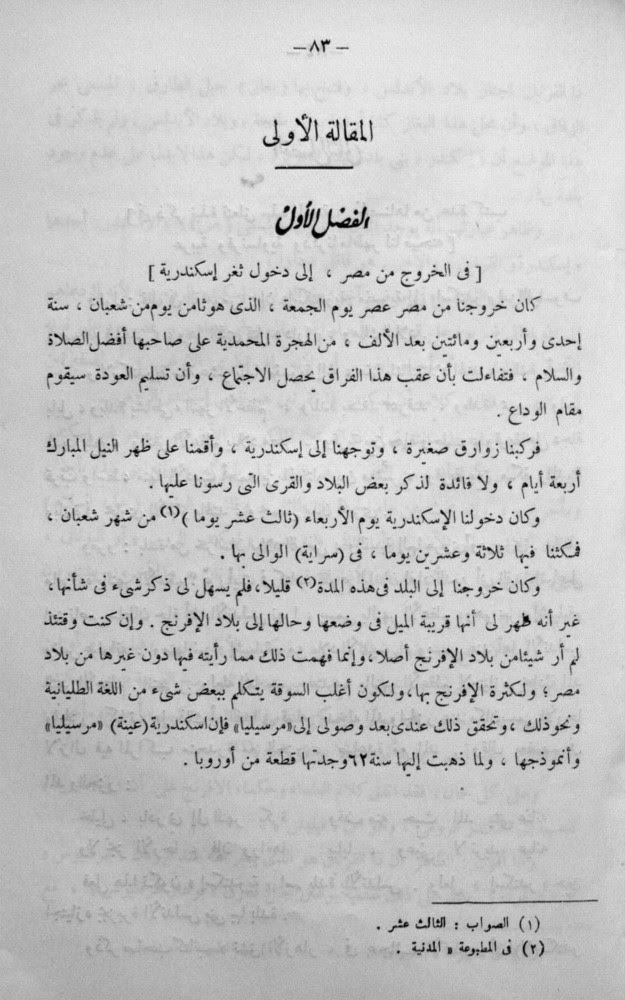 — ٨٣ —
المقالة الأولى
الفصل الأول
[ فى الخروج من مصر ، إلى دخول ثغر إسكندرية ]
كان خروجنا من مصر عصر يوم الجمعة ، الذى هو ثامن يوم من شعبان ، سنة
إحدى وأربعين ومائتين بعد الألف ، من الهجرة المحمدية على صاحبها أفضل الصلاة
والسلام ، فتفاءلت بأن عقب هذا الفراق يحصل الاجتماع ، وأن تسليم العودة سيقوم
مقام الوداع .
فركبنا زوارق صغيرة ، وتوجهنا إلى إسكندرية ، وأقمنا على ظهر النيل المبارك
أربعة أيام ، ولا فائدة لذكر بعض البلاد والقرى التى رسونا عليها .
وكان دخولنا الإسكندرية يوم الأربعاء (ثالث عشر يوما )(١) من شهر شعبان ،
فمكثنا فيها ثلاثة وعشرين يوما ، فى (سراية) الوالى بها .
وكان خروجنا إلى البلد فى هذه المدة(٢) قليلا، فلم يسهل لى ذكر شىء فى شأنها،
غير أنه ظهر لى أنها قريبة الميل فى وضعها وحالها إلى بلاد الإفرنج . وإن كنت وقتئذ
لم أر شيئا من بلاد الإفرنج أصلا، وإنما فهمت ذلك مما رأيته فيها دون غيرها من بلاد
مصر؛ ولكثرة الإفرنج بها، ولكون أغلب السوقة يتكلم ببعض شىء من اللغة الطليانية
ونحو ذلك، وتحقق ذلك عندى بعد وصولى إلى «مرسيليا» فإن اسكندرية (عينة) «مرسيليا»
وأنموذجها ، ولما ذهبت إليها سنة ٦٢ وجدتها قطعة من أوروبا .
(١) الصواب : الثالث عشر .
(٢) فى المطبوعة « المدنية .